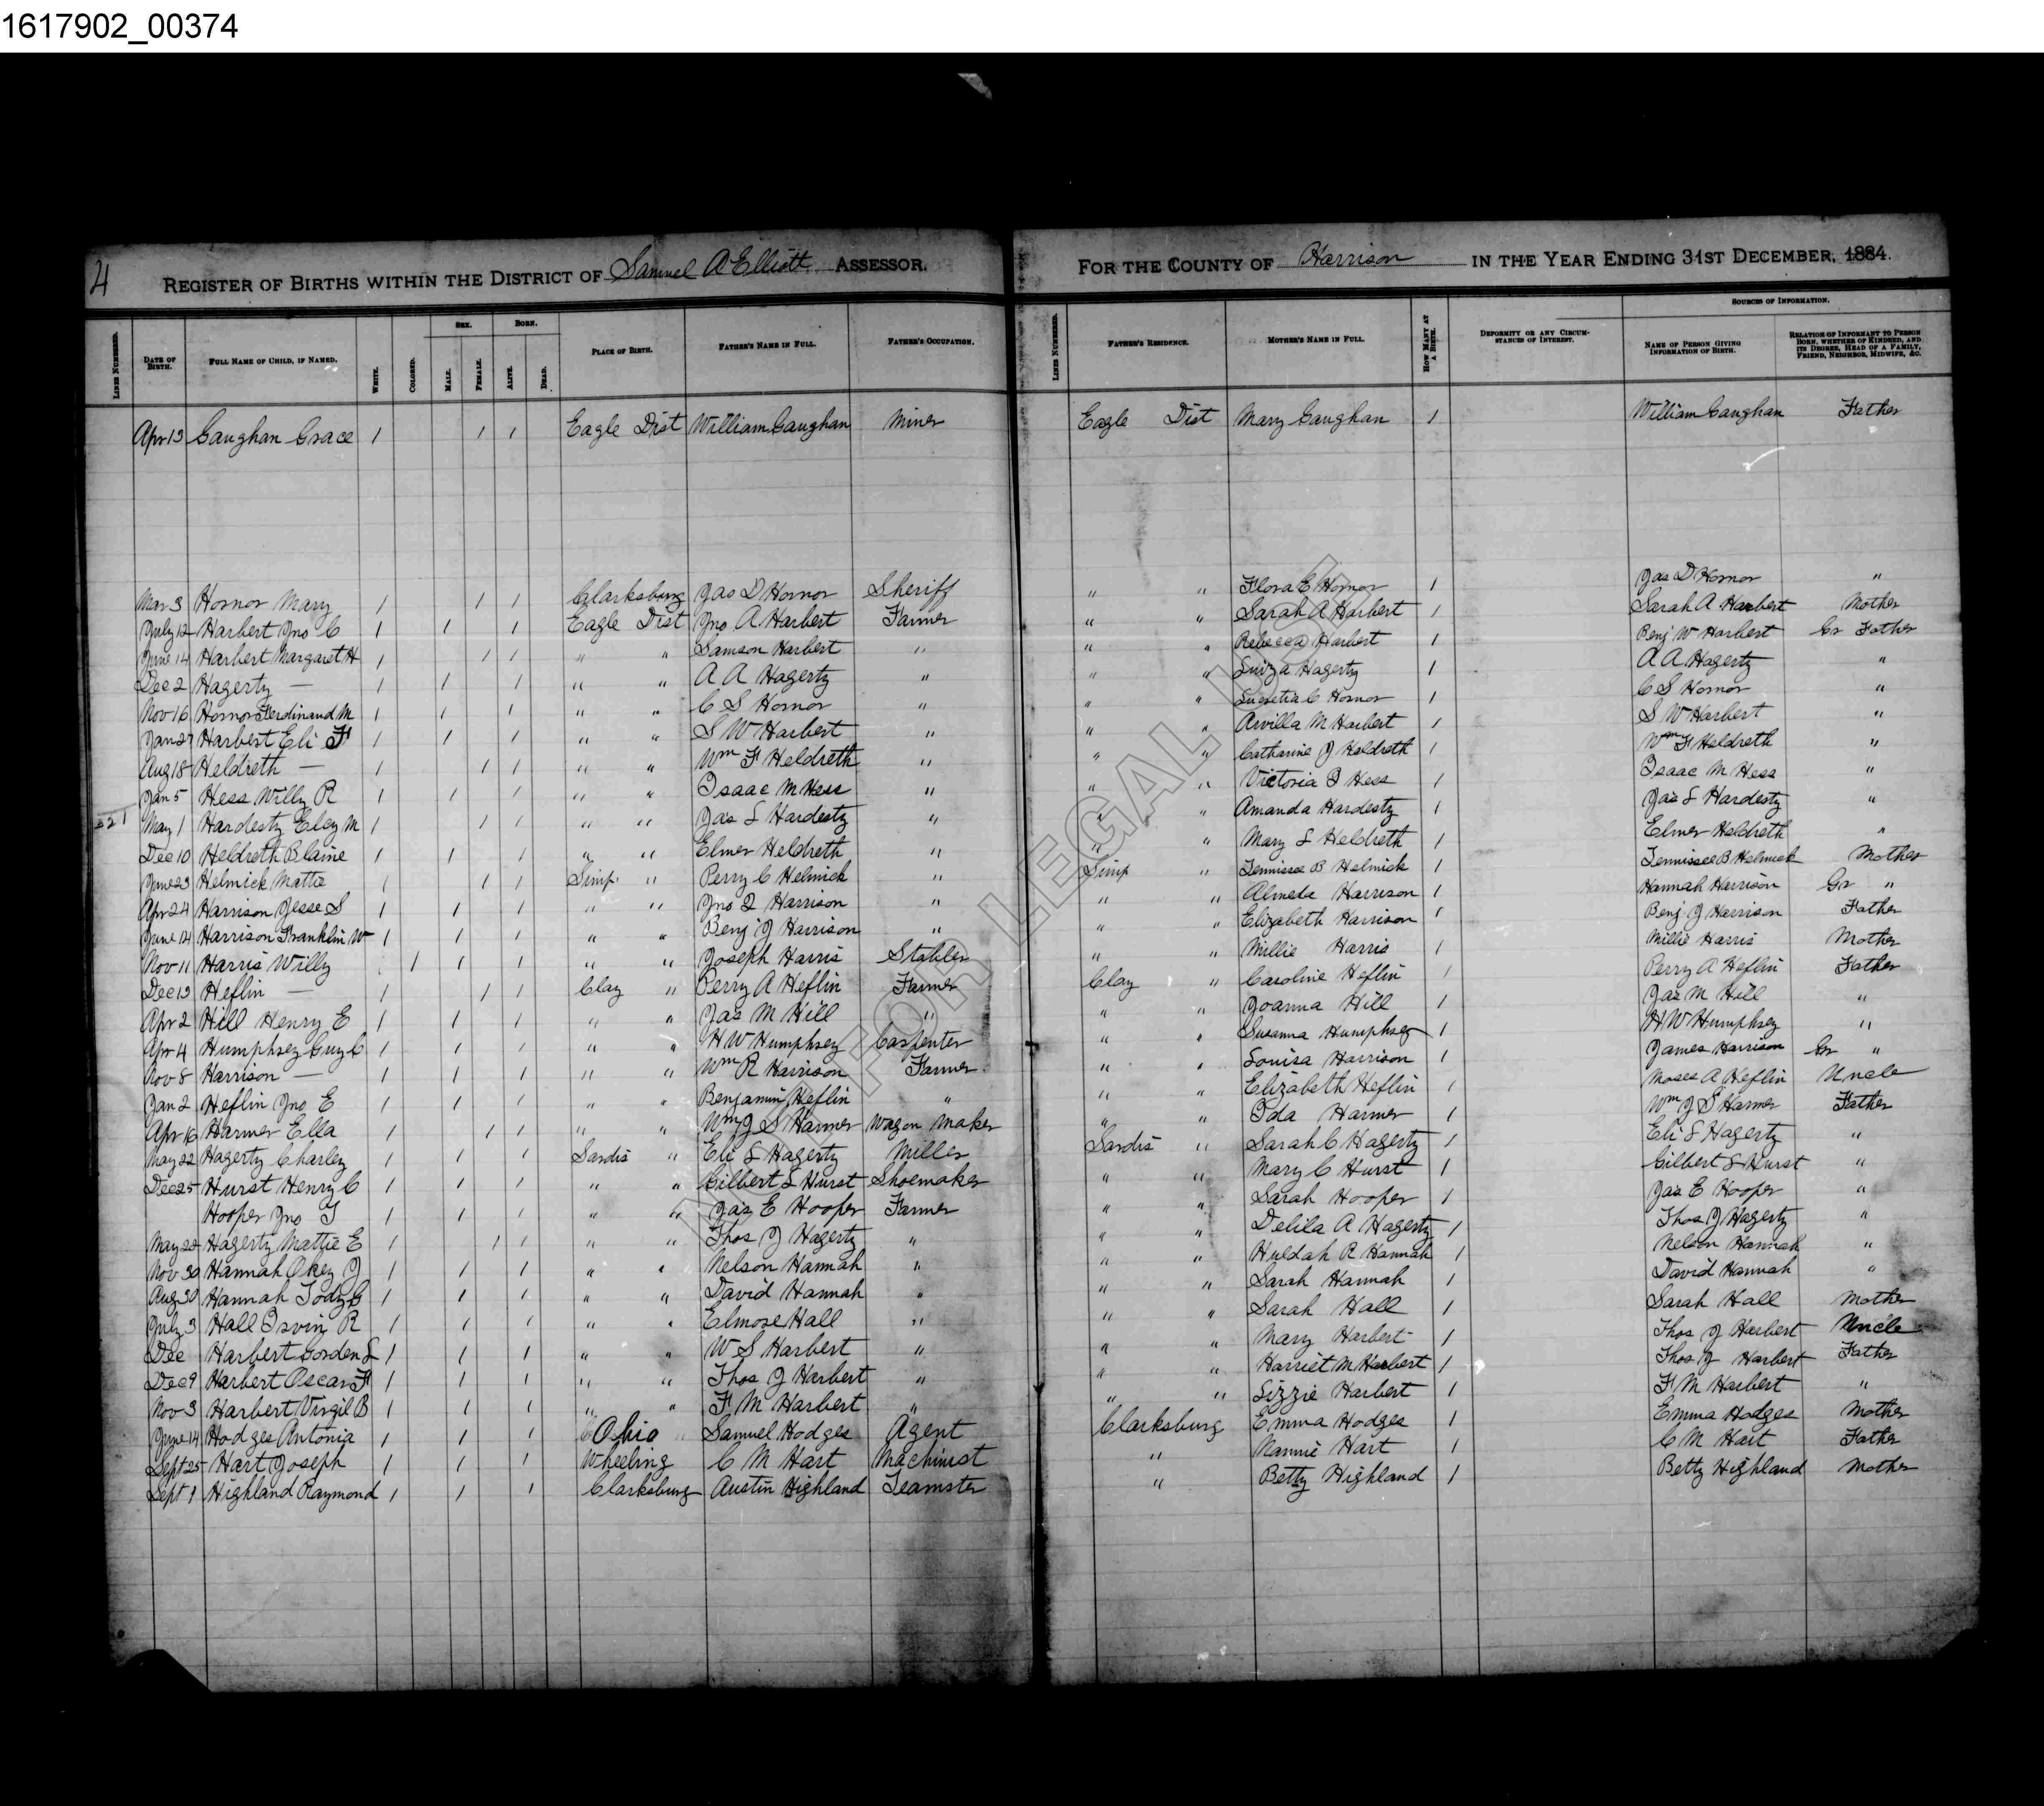 1617902_00374
4 REGISTER OF BIRTHS WITHIN THE DISTRICT OF Samuel A Elliott ASSESSOR. FOR THE COUNTY OF Harrison IN THE YEAR ENDING 31ST DECEMBER, 1884.
LINES NUMBERED. DATE OF BIRTH. FULL NAME OF CHILD, IF NAMED. WHITE. COLORED. SEX. MALE. FEMALE. BORN. ALIVE. DEAD. PLACE OF BIRTH. FATHER'S NAME IN FULL. FATHER'S OCCUPATION. LINES NUMBERED. FATHER'S RESIDENCE. MOTHER'S NAME IN FULL. HOW MANY AT A BIRTH. DEFORMITY OR ANY CIRCUMSTANCES OF INTEREST. SOURCES OF INFORMATION. NAME OF PERSON GIVING INFORMATION OF BIRTH. RELATION OF INFORMANT TO PERSON BORN, WHETHER OF KINDRED, AND ITS DEGREE, HEAD OF A FAMILY, FRIEND, NEIGHBOR, MIDWIFE, &C.
Apr 13 Gaughan Grace 1 1 1 Eagle Dist William Gaughan Miner Eagle Dist Mary Gaughan 1 William Gaughan Father
Mar 3 Hornor Mary 1 1 1 Clarksburg Jas D Hornor Sheriff " " Flora E Hornor 1 Jas D Hornor "
July 12 Harbert Jno C 1 1 1 Eagle Dist Jno A Harbert Farmer " " Sarah A Harbert 1 Sarah A Harbert Mother
June 14 Harbert Margaret H 1 1 1 " " Samson Harbert " " " Rebecca Harbert 1 Benj W Harbert Gr Father
Dec 2 Hagerty — 1 1 1 " " A A Hagerty " " " Luiza Hagerty 1 A A Hagerty "
Nov 16 Hornor Ferdinand M 1 1 1 " " C S Hornor " " " Lucretia C Hornor 1 C S Hornor "
Jan 27 Harbert Eli F 1 1 1 " " S W Harbert " " " Arvilla M Harbert 1 S W Harbert "
Aug 18 Heldreth — 1 1 1 " " Wm F Heldreth " " " Catharine J Heldreth 1 Wm F Heldreth "
Jan 5 Hess Willy R 1 1 1 " " Isaac M Hess " " " Victoria I Hess 1 Isaac M Hess "
May 1 Hardesty Elcy M 1 1 1 " " Jas L Hardesty " " " Amanda Hardesty 1 Jas L Hardesty "
Dec 10 Heldreth Blaine 1 1 1 " " Elmer Heldreth " " " Mary L Heldreth 1 Elmer Heldreth "
June 23 Helmick Matte 1 1 1 Simp. " Perry C Helmick " Simp " Tennissee B Helmick 1 Tennissee B Helmick Mother
Apr 24 Harrison Jesse S 1 1 1 " " Jno I Harrison " " " Almeda Harrison 1 Hannah Harrison Gr "
June 14 Harrison Franklin W 1 1 1 " " Benj J Harrison " " " Elizabeth Harrison 1 Benj J Harrison Father
Nov 11 Harris Willy 1 1 1 " " Joseph Harris Stabler " " Millie Harris 1 Millie Harris Mother
Dec 13 Heflin — 1 1 1 Clay " Perry A Heflin Farmer Clay " Caroline Heflin 1 Perry A Heflin Father
Apr 2 Hill Henry E 1 1 1 " " Jas M Hill " " " Joanna Hill 1 Jas M Hill "
Apr 4 Humphrey Guy C 1 1 1 " " H W Humphrey Carpenter " " Susanna Humphrey 1 H W Humphrey "
Nov 8 Harrison — 1 1 1 " " Wm R Harrison Farmer " " Louisa Harrison 1 James Harrison Gr "
Jan 2 Heflin Jno E 1 1 1 " " Benjamin Heflin " " " Elizabeth Heflin 1 Moses A Heflin Uncle
Apr 16 Harmer Ella 1 1 1 " " Wm J S Harmer Wagon Maker " " Ida Harmer 1 Wm J S Harmer Father
May 22 Hagerty Charley 1 1 1 Sardis " Eli L Hagerty Miller Sardis " Sarah C Hagerty 1 Eli L Hagerty "
Dec 25 Hurst Henry C 1 1 1 " " Gilbert L Hurst Shoemaker " " Mary C Hurst 1 Gilbert L Hurst "
Hooper Jno T 1 1 1 " " Jas E Hooper Farmer " " Sarah Hooper 1 Jas E Hooper "
May 22 Hagerty Mattie E 1 1 1 " " Thos J Hagerty " " " Delila A Hagerty 1 Thos J Hagerty "
Nov 30 Hannah Okey J 1 1 1 " " Nelson Hannah " " " Huldah R Hannah 1 Nelson Hannah "
Aug 30 Hannah Tody C 1 1 1 " " David Hannah " " " Sarah Hannah 1 David Hannah "
July 3 Hall Irvin R 1 1 1 " " Elmore Hall " " " Sarah Hall 1 Sarah Hall Mother
Dec Harbert Gorden L 1 1 1 " " W S Harbert " " " Mary Harbert 1 Thos J Harbert Uncle
Dec 9 Harbert Oscar F 1 1 1 " " Thos J Harbert " " " Harriet M Harbert 1 Thos J Harbert Father
Nov 3 Harbert Virgil B 1 1 1 " " F M Harbert " " " Lizzie Harbert 1 F M Harbert "
June 14 Hodges Antonia 1 1 1 Ohio Samuel Hodges Agent Clarksburg Emma Hodges 1 Emma Hodges Mother
Sept 25 Hart Joseph 1 1 1 Wheeling C M Hart Machinist " Nannie Hart 1 C M Hart Father
Sept 1 Highland Raymond 1 1 1 Clarksburg Austin Highland Teamster " Betty Highland 1 Betty Highland Mother